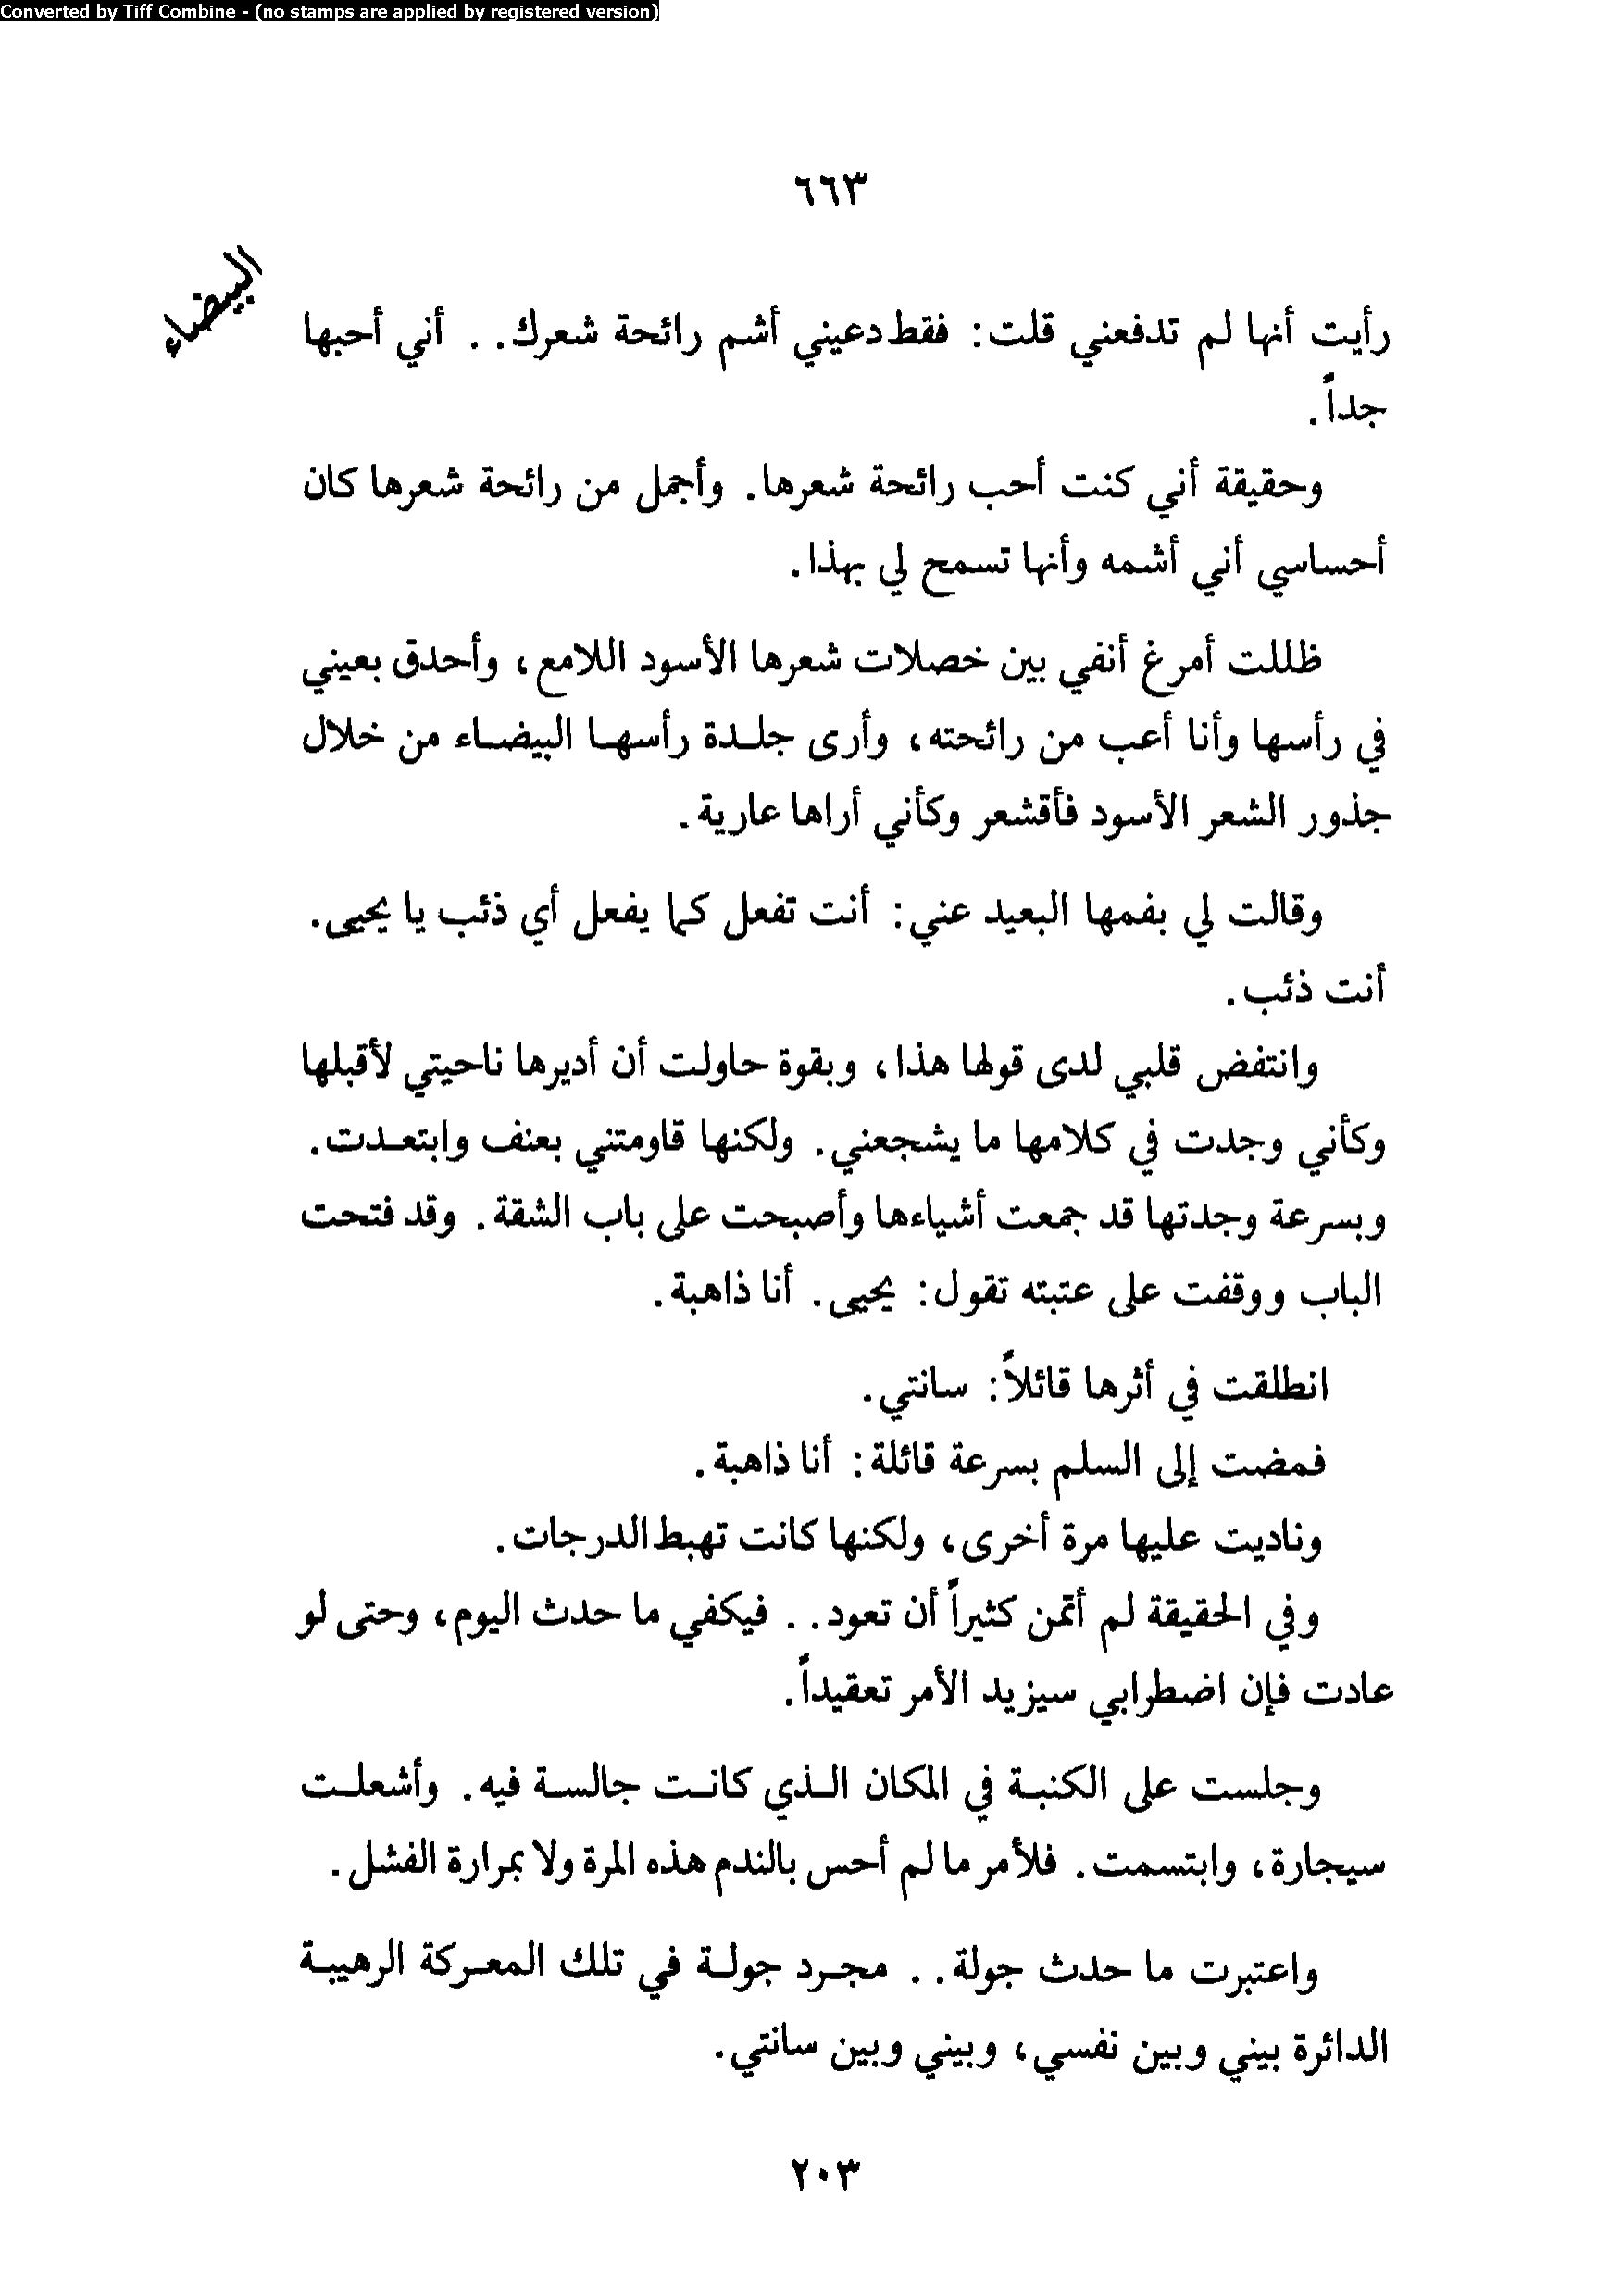 Converted by Tiff Combine - (no stamps are applied by registered version)
٦٦٣
البيضاء
رأيت أنها لم تدفعني قلت: فقط دعيني أشم رائحة شعرك.. أني أحبها
جداً.
وحقيقة أني كنت أحب رائحة شعرها. وأجمل من رائحة شعرها كان
أحساسي أني أشمه وأنها تسمح لي بهذا.
ظللت أمرغ أنفي بين خصلات شعرها الأسود اللامع، وأحدق بعيني
في رأسها وأنا أعب من رائحته، وأرى جلدة رأسها البيضاء من خلال
جذور الشعر الأسود فأقشعر وكأني أراها عارية.
وقالت لي بفمها البعيد عني: أنت تفعل كما يفعل أي ذئب يا يحيى.
أنت ذئب.
وانتفض قلبي لدى قولها هذا، وبقوة حاولت أن أديرها ناحيتي لأقبلها
وكأني وجدت في كلامها ما يشجعني. ولكنها قاومتني بعنف وابتعدت.
وبسرعة وجدتها قد جمعت أشياءها وأصبحت على باب الشقة. وقد فتحت
الباب ووقفت على عتبته تقول: يحيى. أنا ذاهبة.
انطلقت في أثرها قائلاً: سانتي.
فمضت إلى السلم بسرعة قائلة: أنا ذاهبة.
وناديت عليها مرة أخرى، ولكنها كانت تهبط الدرجات.
وفي الحقيقة لم أتمن كثيراً أن تعود.. فيكفي ما حدث اليوم، وحتى لو
عادت فإن اضطرابي سيزيد الأمر تعقيداً.
وجلست على الكنبة في المكان الذي كانت جالسة فيه. وأشعلت
سيجارة، وابتسمت. فلأمر ما لم أحس بالندم هذه المرة ولا بمرارة الفشل.
واعتبرت ما حدث جولة.. مجرد جولة في تلك المعركة الرهيبة
الدائرة بيني وبين نفسي، وبيني وبين سانتي.
٢٠٣